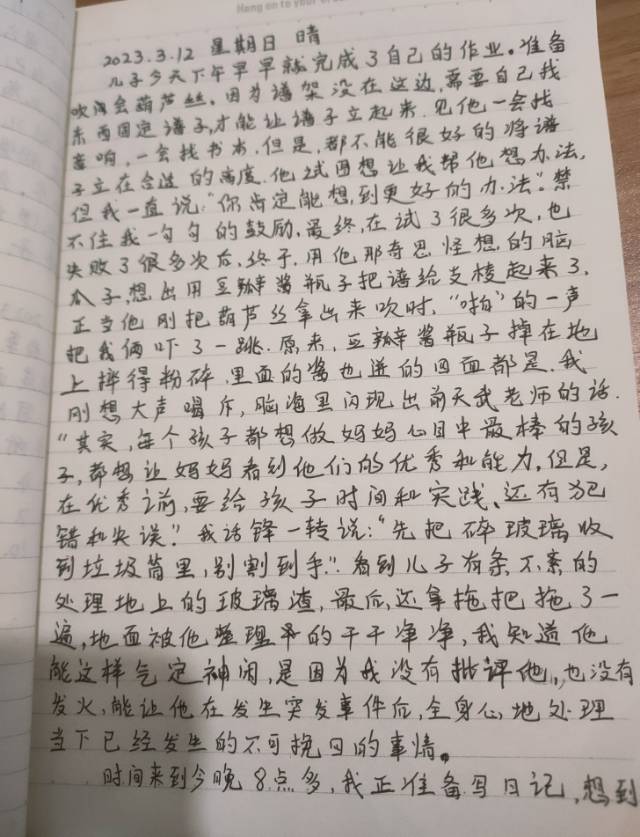 Hang on to your
2023.3.12 星期日 晴
儿子今天下午早早就完成了自己的作业。准备
吹会葫芦丝。因为谱架没在这边,需要自己找
东西固定谱子,才能让谱子立起来.见他一会找
音响,一会找书本,但是,都不能很好的将谱
子立在合适的高度.他试图想让我帮他想办法,
但我一直说:“你肯定能想到更好的办法”.禁
不住我一句句的鼓励,最终,在试了很多次,也
失败了很多次后,终于.用他那奇思怪想的脑
瓜子,想出用豆瓣酱瓶子把谱给支棱起来了,
正当他刚把葫芦丝拿出来吹时,“啪”的一声
把我俩吓了一跳.原来,豆瓣酱瓶子掉在地
上摔得粉碎.里面的酱也迸的四面都是.我
刚想大声喝斥,脑海里闪现出前天武老师的话.
“其实,每个孩子都想做妈妈心目中最棒的孩
子,都想让妈妈看到他们的优秀和能力,但是,
在优秀之前,要给孩子时间和实践、还有犯
错和失误”!我话锋一转说:“先把碎玻璃收
到垃圾筒里,别割到手”.看到儿子有条不紊的
处理地上的玻璃渣,最后,还拿拖把拖了一
遍,地面被他整理的干干净净,我知道他
能这样气定神闲,是因为我没有批评他,也没有
发火,能让他在发生突发事件后,全身心地处理
当下已经发生的不可挽回的事情。
时间来到今晚8点多,我正准备写日记,想到